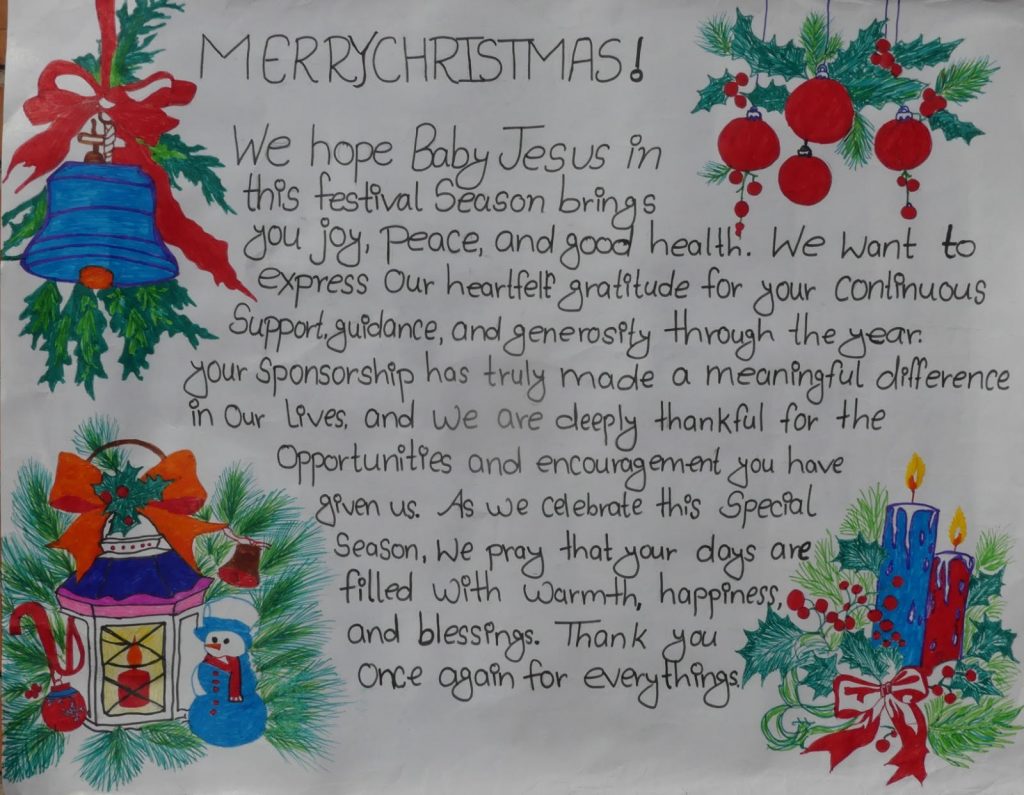 MERRYCHRISTMAS!
We hope Baby Jesus in
this festival Season brings
you joy, peace, and good health. We want to
express our heartfelt gratitude for your continuous
Support, guidance, and generosity through the year.
your sponsorship has truly made a meaningful difference
in our Lives, and we are deeply thankful for the
Opportunities and encouragement you have
given us. As we celebrate this Special
Season, We pray that your days are
filled with warmth, happiness,
and blessings. Thank you
Once again for everythings.